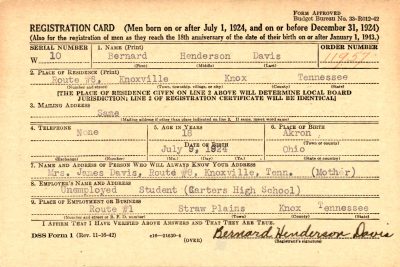 FORM APPROVED
Budget Bureau No. 33-R012-42
REGISTRATION CARD (Men born on or after July 1, 1924, and on or before December 31, 1924)
(Also for the registration of men as they reach the 18th anniversary of the date of their birth on or after January 1, 1943.)
SERIAL NUMBER 1. NAME (Print) ORDER NUMBER
W 10 Bernard Henderson Davis 11957
(First) (Middle) (Last)
2. PLACE OF RESIDENCE (Print)
Route #8, Knoxville Knox Tennessee
(Number and street) (Town, township, village, or city) (County) (State)
[THE PLACE OF RESIDENCE GIVEN ON LINE 2 ABOVE WILL DETERMINE LOCAL BOARD
JURISDICTION; LINE 2 OF REGISTRATION CERTIFICATE WILL BE IDENTICAL]
3. MAILING ADDRESS
Same
[Mailing address if other than place indicated on line 2. If same, insert word same]
4. TELEPHONE 5. AGE IN YEARS 6. PLACE OF BIRTH
None 18 Akron
DATE OF BIRTH (Town or county)
July 9, 1924 Ohio
(Exchange) (Number) (Mo.) (Day) (Yr.) (State or country)
7. NAME AND ADDRESS OF PERSON WHO WILL ALWAYS KNOW YOUR ADDRESS
Mrs. James Davis, Route #8, Knoxville, Tenn. (Mother)
8. EMPLOYER'S NAME AND ADDRESS
Unemployed Student (Carters High School)
9. PLACE OF EMPLOYMENT OR BUSINESS
Route #1 Straw Plains Knox Tennessee
(Number and street or R. F. D. number) (Town) (County) (State)
I AFFIRM THAT I HAVE VERIFIED ABOVE ANSWERS AND THAT THEY ARE TRUE.
DSS Form 1 (Rev. 11-16-42) (OVER) Bernard Henderson Davis
(Registrant's signature)